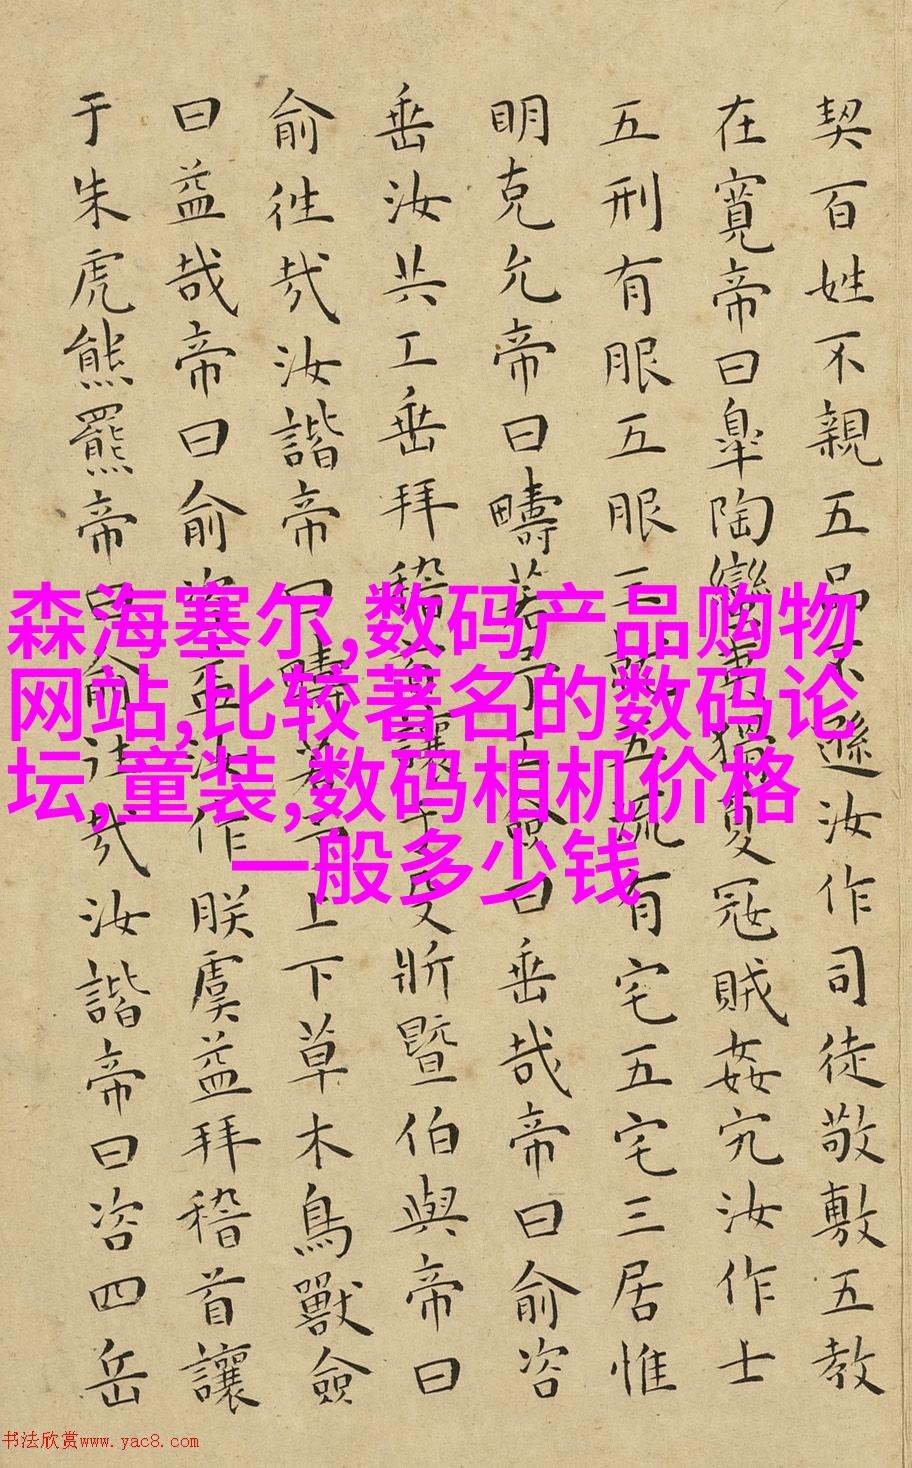 契百姓不親五品不遜汝作司徒敬敷五教
在寬帝曰皐陶蠻夷猾夏冦賊姦宄汝作士
五刑有服五服三就五流有宅五宅三居惟
明克允帝曰疇若予工僉曰垂哉帝曰俞咨
垂汝共工垂拜稽首讓于殳斨曁伯與帝曰
俞徃哉汝諧帝曰疇若予上下草木鳥獸僉
曰益哉帝曰俞咨益汝作朕虞益拜稽首讓
于朱虎熊羆帝曰俞往哉汝諧帝曰咨四岳
森海塞尔,数码产品购物
网站,比较著名的数码论
坛,童装,数码相机价格
一般多少钱
书法欣赏www.yac8.com